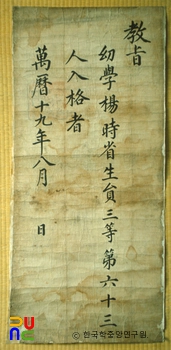 教旨
幼學楊時省生員三等第六十三
人入格者
萬曆十九年八月 日
© 한국학중앙연구원